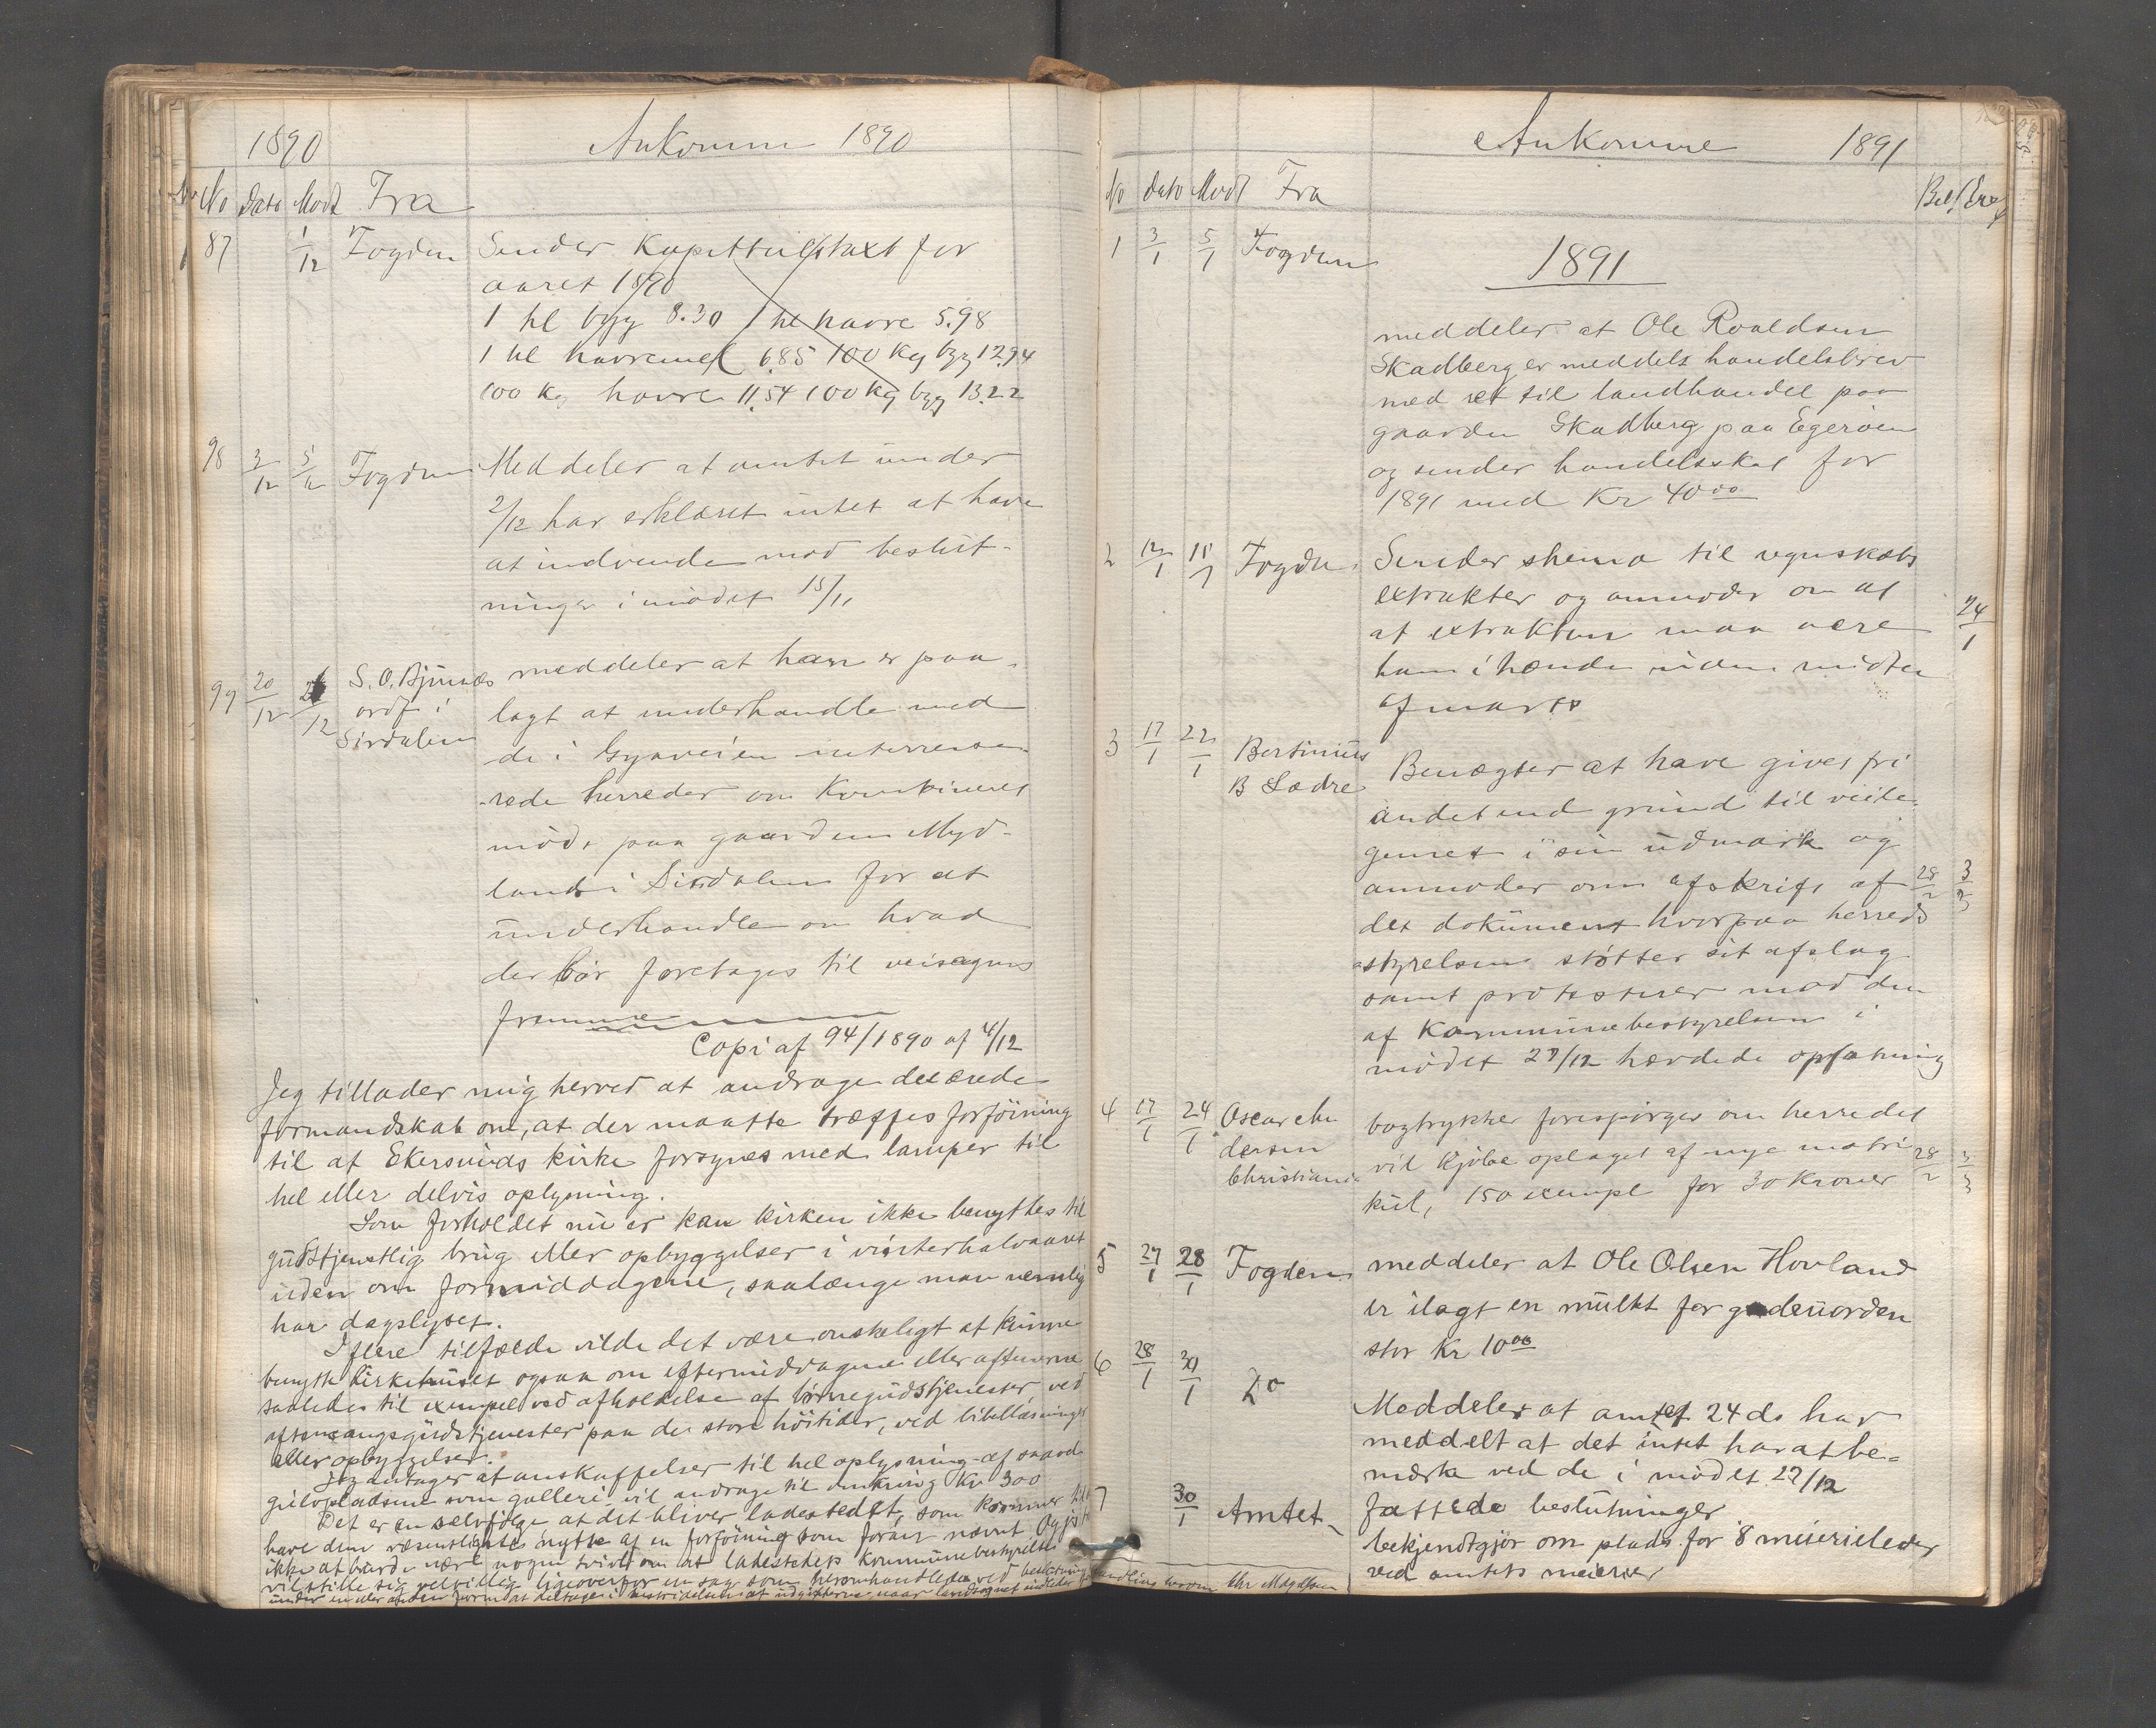 1890 Ankomne 1890
No Dato Modt Fra
87 1/12 Fogden Sender Kapittelstaxt for
aaret 1890
1 hl byg 8.30 1 hl havre 5.98
1 hl havremel 6.85 100 kg byg 12.94
100 kg havre 11.54 100 kg byg 13.22
98 3/12 5/12 Fogden Meddeler at amtet under
2/12 har erklæret intet at have
at indvende mod beslut-
ninger i mødet 15/11
99 20/12 /12 S.O. meddeler at han er paa-
ordf i lagt at underhandle med
Sirdalen de i veien interresse-
rede herreder om Kombineret
møde paa gaarden Myd-
land i Sirdalen for at
underhandle om hvad
der bør foretages til veisagens
fremme
Copi af 94/1890 af 4/12
Jeg tillader mig herved at andrage det ærede
formandskab om, at der maatte træffes forføining
til at Ekersunds kirke forsynes med lamper til
hel eller delvis oplysning.
Som forholdet nu er kan kirken ikke benyttes til
gudstjenstlig brug eller opbyggelser i vinterhalvaaret
uden om formiddagene, saalænge man nemlig
har dagslyset.
I flere tilfælde vilde det være ønskeligt at kunne
benytte kirkehuset ogsaa om eftermiddagene eller aftenerne
saaledes til exempel ved afholdelse af børnegudstjenester, ved
aftensangsgudstjenester paa de store høitider, ved bibellæsninger
eller opbyggelser.
Jeg antager at anskaffelser til hel oplysning af saavel
gulvpladsene som galleri vil andrage til omkring Kr 300
Det er en selvfølge at det bliver ladestedet, som kommer til at
have den væsentligste nytte af en forføining som foran nævnt. Og jeg
ikke at burde være nogen tvivl om at ladestedets kommunebestyrelse
vil stille sig velvillig ligeoverfor en sag som heromhandlede ved
under en eller anden form at deltage i bestridelsen af udgifterne, naar landsognet indleder
Ankomne 1891
No Dato Modt Fra Bes. Exp
1 3/1 5/1 Fogden 1891
meddeler at Ole Roaldsen
Skadberg er meddelt handelsbrev
med ret til landhandel paa
gaarden Skadberg paa Egerøen
og sender handelsskat for
1891 med Kr 40 00
2 12/1 Fogden Sender shema til regnskabs
extrakter og anmoder om at
at extrakten maa være 24/1
ham ihænde inden midten
af marts
3 17/1 22/1 Bertinius Benægter at have givet fri
B Sædre andet end grund til veite
gennet i sin udmark og
anmoder om afskrift af 28/2 3/3
det dokument hvorpaa herreds
styrelsen støtter sit afslag
samt protesterer mod den
af Kommunebestyrelsen i
mødet 27/12 hævdede opfatning
4 17/1 24/1 Oscar An bogtrykker forespørges om herredet
dersen vil kjøbe oplaget af nye matri 28/2 3/3
Christiania kul, 150 exempl for 30 Kroner
5 27/1 28/1 Fogden meddeler at Ole Olsen Hovland
er ilagt en mulkt for gadeuorden
stor Kr 10 00
6 28/1 30/1 Do
Meddeler at amtet 24 ds har
meddelt at det intet har at be-
mærke ved de i mødet 27/12
fattede beslutninger
7 30/1 Amtet bekjendtgjør om plads for 8 meierielever
ved amtets meierier
handling hvorom Chr Magdssen